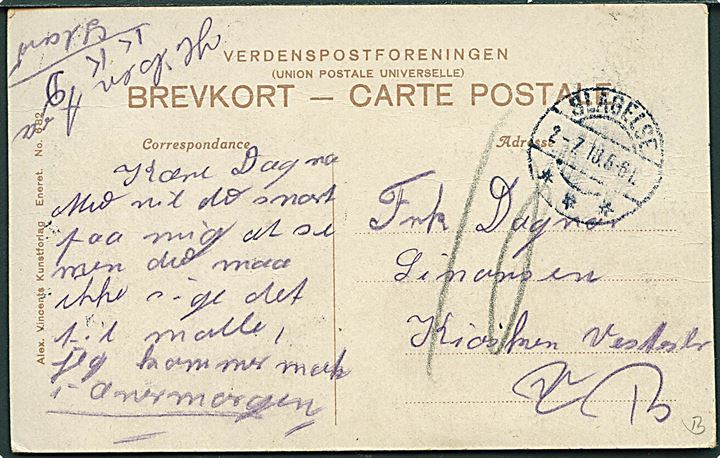 VERDENSPOSTFORENINGEN
(UNION POSTALE UNIVERSELLE)
BREVKORT — CARTE POSTALE
Correspondance
Adresse
SLAGELSE
2-7.10.5-6E.
Alex. Vincents Kunstforlag Eneret. No. 682
Kære Dagna
Med vil du snart
faa mig at se
men du maa
ikke sige det
til malle,
jeg kommer
i overmorgen
Frk Dagnar
Simonsen
Kiosken Vestr
B
10
B